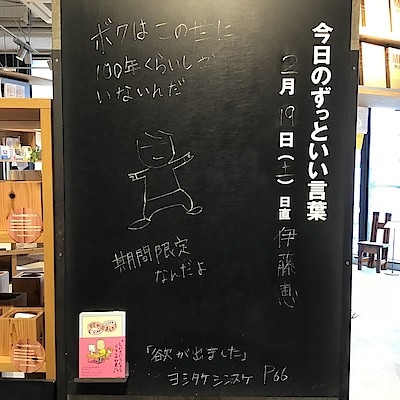 今日のずっといい言葉
2月19日(土) 日直 伊藤恵
ボクはこの世に
100年くらいしか
いないんだ
期間限定
なんだよ
「欲が出ました」
ヨシタケシンスケ P66